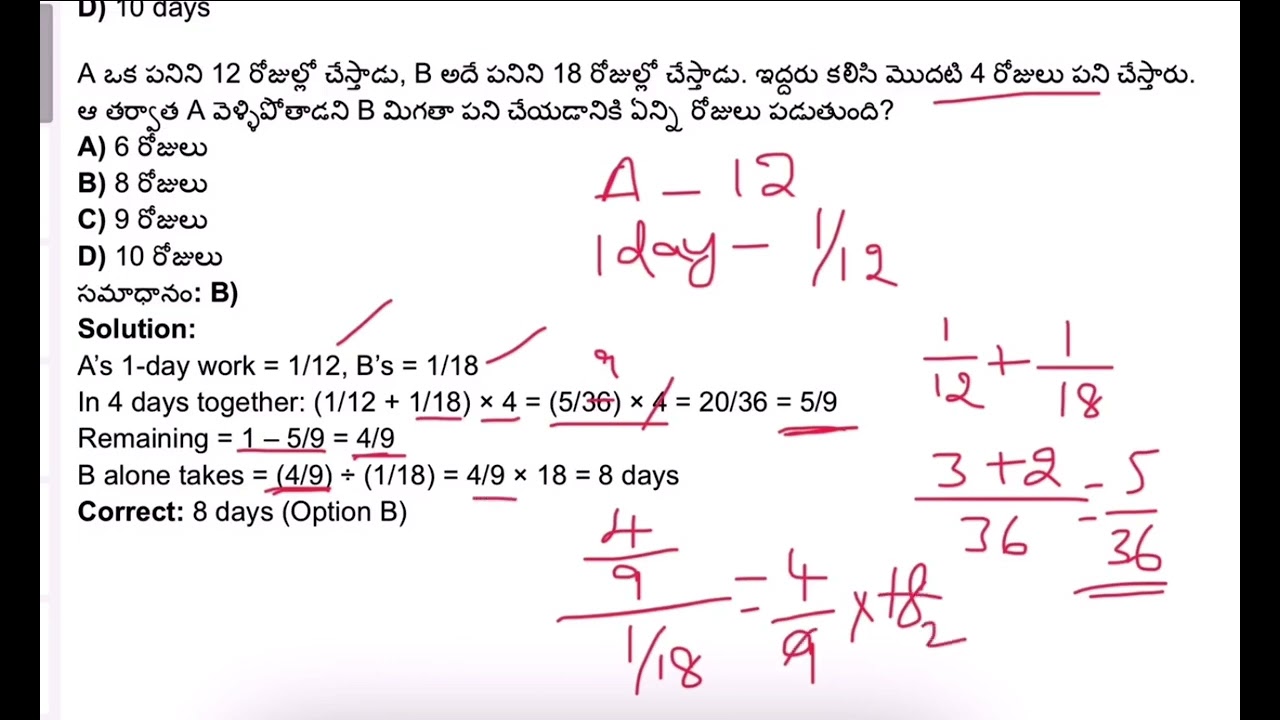 D) 10 days
A ఒక పనిని 12 రోజుల్లో చేస్తాడు, B అదే పనిని 18 రోజుల్లో చేస్తాడు. ఇద్దరు కలిసి మొదటి 4 రోజులు పని చేస్తారు.
ఆ తర్వాత A వెళ్ళిపోతాడని B మిగతా పని చేయడానికి ఏన్ని రోజులు పడుతుంది?
A) 6 రోజులు
B) 8 రోజులు
C) 9 రోజులు
D) 10 రోజులు
సమాధానం: B)
Solution:
A’s 1-day work = 1/12, B’s = 1/18
In 4 days together: (1/12 + 1/18) × 4 = (5/36) × 4 = 20/36 = 5/9
Remaining = 1 – 5/9 = 4/9
B alone takes = (4/9) ÷ (1/18) = 4/9 × 18 = 8 days
Correct: 8 days (Option B)
A – 12
1 day – 1/12
9
1/12 + 1/18
3+2/36 = 5/36
4/9 / 1/18 = 4/9 × 18 2